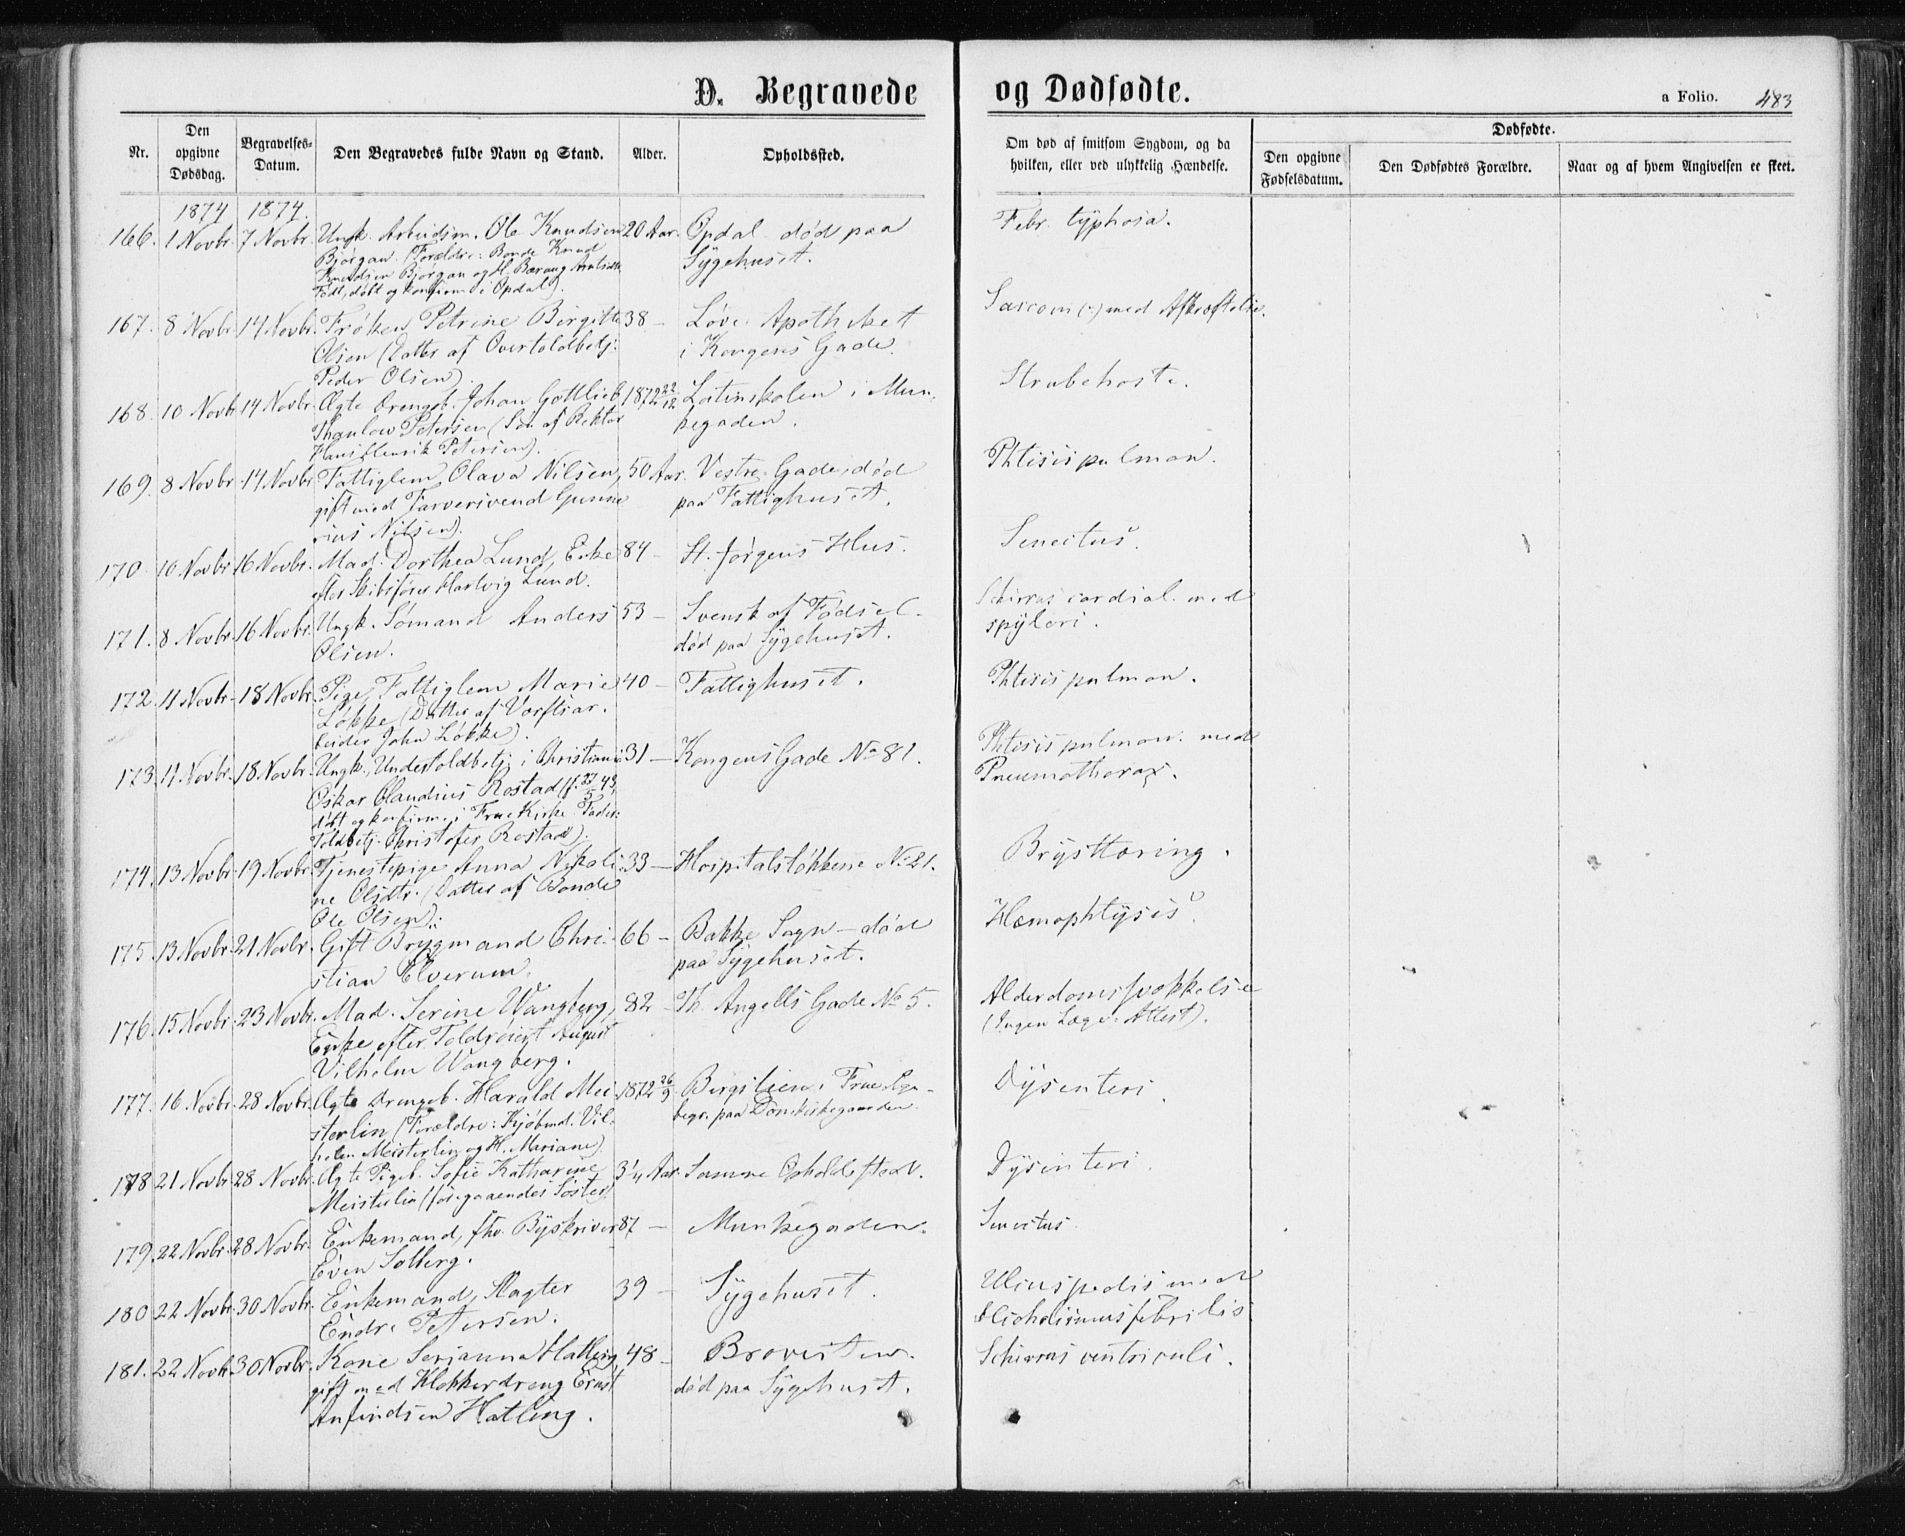 D. Begravede og Dødfødte.
a Folio. 483
Nr.
Den opgivne Dødsdag.
Begravelses-Datum.
Den Begravedes fulde Navn og Stand.
Alder.
Opholdssted.
Om død af smitsom Sygdom, og da hvilken, eller ved ulykkelig Hændelse.
Dødfødte.
Den opgivne Fødselsdatum.
Den Dødfødtes Forældre.
Naar og af hvem Angivelsen er skeet.
1874 1874.
166. 1 Novbr. 7 Novbr. Ungk. Arbeidsm. Ole Knudsen 20 Aar. Opdal død paa Febr. typhosa.
Bjørgan. (Forældre: Bonde Knud Sygehuset.
Knudsen Bjørgan og H.
Født, døbt og konfirm. i Opdal).
167. 8 Novbr. 14 Novbr. Frøken Petrine Birgitte 38 — Løve Apotheket Sarcom (-) med Afkræftelse.
Olsen (Datter af Overtoldbetj. i Kongens Gade.
Peder Olsen).
168. 10 Novbr. 14 Novbr. Ægte Drengeb. Johan Gottlieb 1872 22/12 Latinskolen i Mun- Strubehoste.
Thaulow Petersen (Søn af Rektor kegaden.
Hans Henrik Petersen).
169. 8 Novbr. 14 Novbr. Fattiglem Olava Nilsen, 50 Aar. Vestre Gade, død Phtisis pulmon.
gift med Farversvend Gunne- paa Fattighuset.
rius Nilsen).
170. 10 Novbr. 16 Novbr. Mad. Dorthea Lund, Enke 84 — St. Jørgens Hus. Senectus.
efter Skibsfører Hartvig Lund.
171. 8 Novbr. 16 Novbr. Ungk. Sømand Anders 53 — Svensk af Fødsel - Schirras cardial. med
Olsen. død paa Sygehuset. spylori.
172. 11 Novbr. 18 Novbr. Pige, Fattiglem Marie 40 — Fattighuset. Phtisis pulmon.
Løkke (Datter af Værftsar-
beider John Løkke).
173. 11 Novbr. 18 Novbr. Ungk. Undertoldbetj. i Christiania 31 — Kongens Gade No 81. Phtisis pulmon. med
Oskar Claudius Rostad (f. 27/5 43, Pneumothorax.
døbt og konfirm. i Frue Kirke Fader:
Toldbetj. Christofer Rostad).
174. 13 Novbr. 19 Novbr. Tjenestepige Anna Nikoli- 33 — Hospitalsløkkerne No 21. Brysttæring.
ne Olsdtr. (Datter af Bonde
Ole Olsen).
175. 13 Novbr. 21 Novbr. Gift Brygmand Chri- 66 — Bakke Sogn — død Hæmophtysis.
stian Elverum. paa Sygehuset.
176. 15 Novbr. 23 Novbr. Mad. Serine Wangberg, 82 — Th. Angells Gade No 5. Alderdomssvækkelse
Enke efter Toldrøiert August (Ingen Læge-Attest).
Vilhelm Wangberg.
177. 16 Novbr. 28 Novbr. Ægte Drengeb. Harald Mei- 1872 26/9 Bergslien, Frue Sgn - Dysenteri.
sterlin (Forældre: Kjøbmd. Vil- begr. paa Domkirkegaarden.
helm Meisterlin og H. Mariane).
178. 21 Novbr. 28 Novbr. Ægte Pigeb. Sofie Katharine 3 1/4 Aar. Samme Opholdssted. Dysenteri.
Meisterlin (foregaaendes Søster).
179. 22 Novbr. 28 Novbr. Enkemand, fhv. Byskriver 87 — Munkegaden. Senectus.
Even Solberg.
180. 22 Novbr. 30 Novbr. Enkemand, Slagter 39 — Sygehuset. Ulcus pedis med
Endre Petersen. Alcholismus febrilis
181. 22 Novbr. 30 Novbr. Kone Serianna Hatling, 48 — Brovesten. Schirras ventriculi.
gift med Klokkerdreng Ernst død paa Sygehuset.
Anfindsen Hatling.